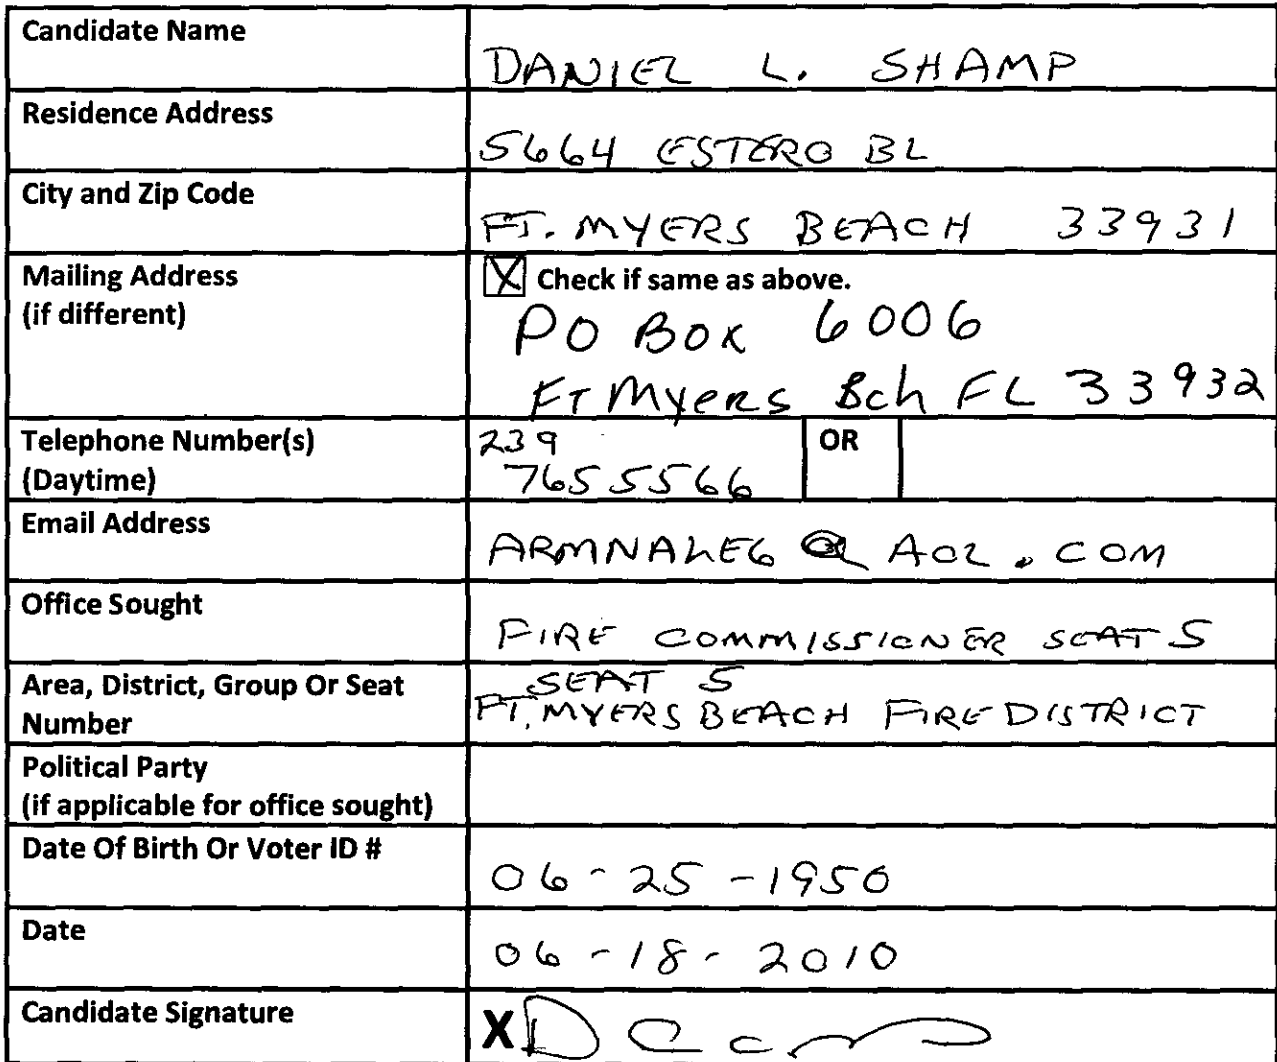 Candidate Name
DANIEL L. SHAMP
Residence Address
5664 ESTERO BL
City and Zip Code
FT. MYERS BEACH 33931
Mailing Address
(if different)
X Check if same as above.
PO BOX 6006
FT Myers Bch FL 33932
Telephone Number(s)
(Daytime)
239
765 5566
OR
Email Address
@ AOL.COM
Office Sought
FIRE COMMISSIONER SEAT 5
Area, District, Group Or Seat
Number
SEAT 5
FT. MYERS BEACH FIRE DISTRICT
Political Party
(if applicable for office sought)
Date Of Birth Or Voter ID #
06-25-1950
Date
06-18-2010
Candidate Signature
X